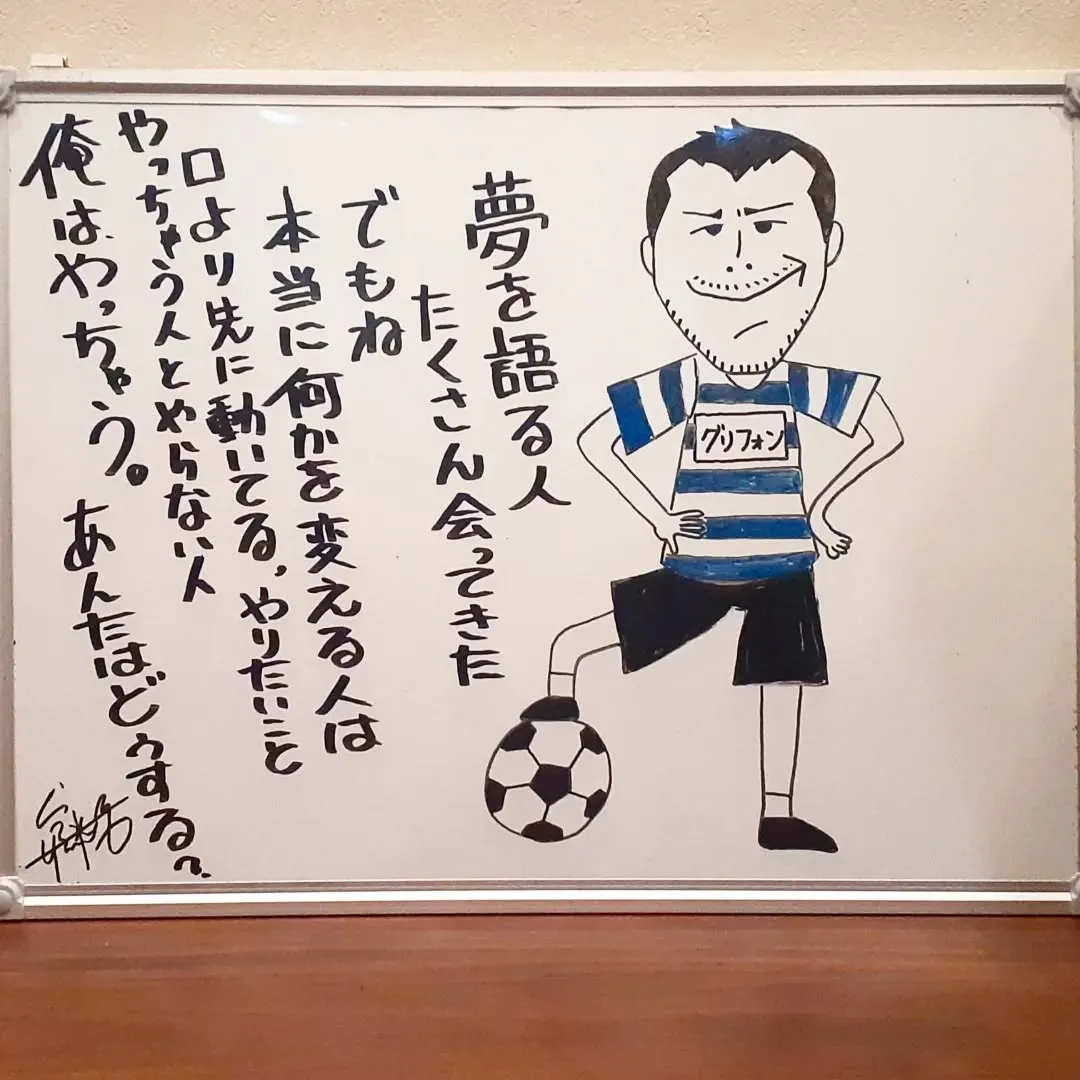 夢を語る人
たくさん会ってきた
でもね
本当に何かを変える人は
口より先に動いてる、やりたいこと
やっちゃう人とやらない人
俺は、やっちゃう。あんたはどうする?
グリフォン